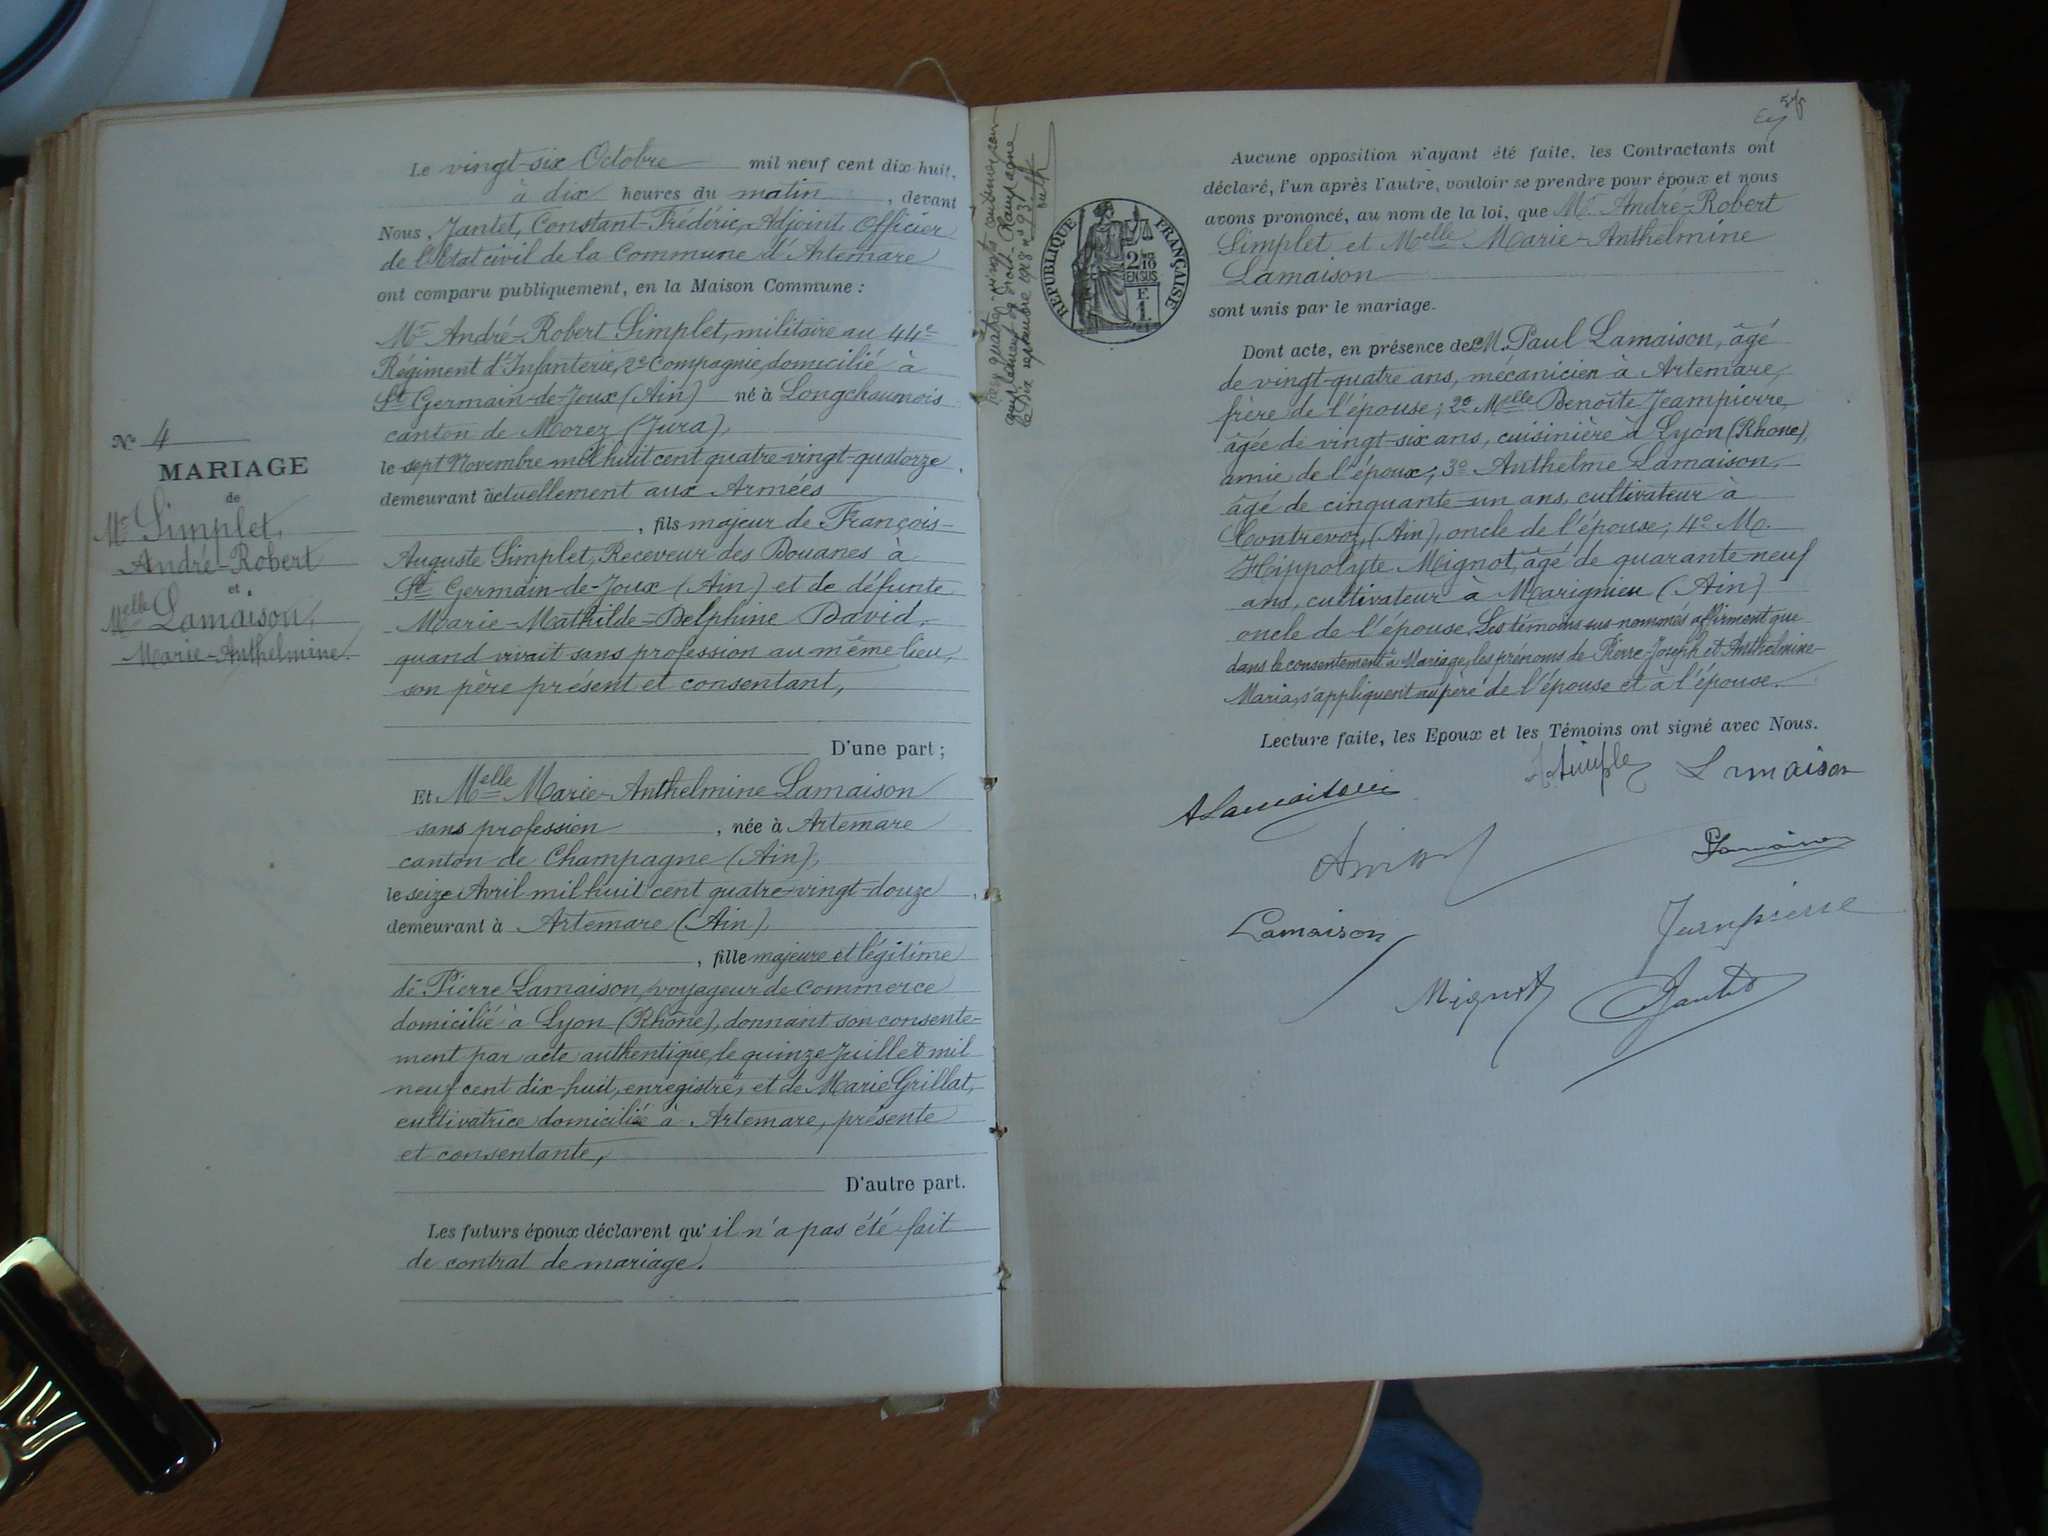 Nº 4
MARIAGE
de
Mr Simplet,
André-Robert
et
Melle Lamaison,
Marie-Anthelmine.
Le vingt-six Octobre mil neuf cent dix-huit,
à dix heures du matin, devant
Nous Jantet, Constant-Frédéric, Adjoint, Officier
de l'Etat civil de la Commune d'Artemare
ont comparu publiquement, en la Maison Commune :
Mr André-Robert Simplet, militaire au 44e
Régiment d'Infanterie, 2e Compagnie, domicilié à
St Germain-de-Joux (Ain) né à Longchaumois
canton de Morez (Jura),
le sept Novembre mil huit cent quatre-vingt-quatorze,
demeurant actuellement aux Armées
, fils majeur de François-
Auguste Simplet, Receveur des Douanes à
St Germain-de-Joux (Ain) et de défunte
Marie-Mathilde-Delphine David,
quand vivait sans profession au même lieu,
son père présent et consentant,
D'une part ;
Et Melle Marie-Anthelmine Lamaison
sans profession, née à Artemare
canton de Champagne (Ain),
le seize Avril mil huit cent quatre-vingt-douze,
demeurant à Artemare (Ain),
, fille majeure et légitime
de Pierre Lamaison, voyageur de commerce
domicilié à Lyon (Rhône), donnant son consente-
ment par acte authentique, le quinze Juillet mil
neuf cent dix-huit, enregistré, et de Marie Grillat,
cultivatrice domiciliée à Artemare, présente
et consentante,
D'autre part.
Les futurs époux déclarent qu'il n'a pas été fait
de contrat de mariage.
septembre 1918 nº 931
RÉPUBLIQUE FRANÇAISE
2/10
EN SUS
E
1
Aucune opposition n'ayant été faite, les Contractants ont
déclaré, l'un après l'autre, vouloir se prendre pour époux et nous
avons prononcé, au nom de la loi, que Mr André-Robert
Simplet et Melle Marie-Anthelmine
Lamaison
sont unis par le mariage.
Dont acte, en présence de M. Paul Lamaison, âgé
de vingt-quatre ans, mécanicien à Artemare,
frère de l'épouse ; 2º Melle Benoîte Jeampierre,
âgée de vingt-six ans, cuisinière à Lyon (Rhône),
amie de l'époux ; 3º Anthelme Lamaison,
âgé de cinquante-un ans, cultivateur à
Contrevoz, (Ain), oncle de l'épouse ; 4º M.
Hippolyte Mignot, âgé de quarante-neuf
ans, cultivateur à Marignieu (Ain)
oncle de l'épouse. Les témoins sus-nommés affirment que
dans le consentement à Mariage, les prénoms de Pierre-Joseph et Anthelmine-
Maria, s'appliquent au père de l'épouse et à l'épouse.
Lecture faite, les Epoux et les Témoins ont signé avec Nous.
A. Simplet Lamaison
A Lamaison
P Lamaison
Lamaison Jeanpierre
Mignot Jantet